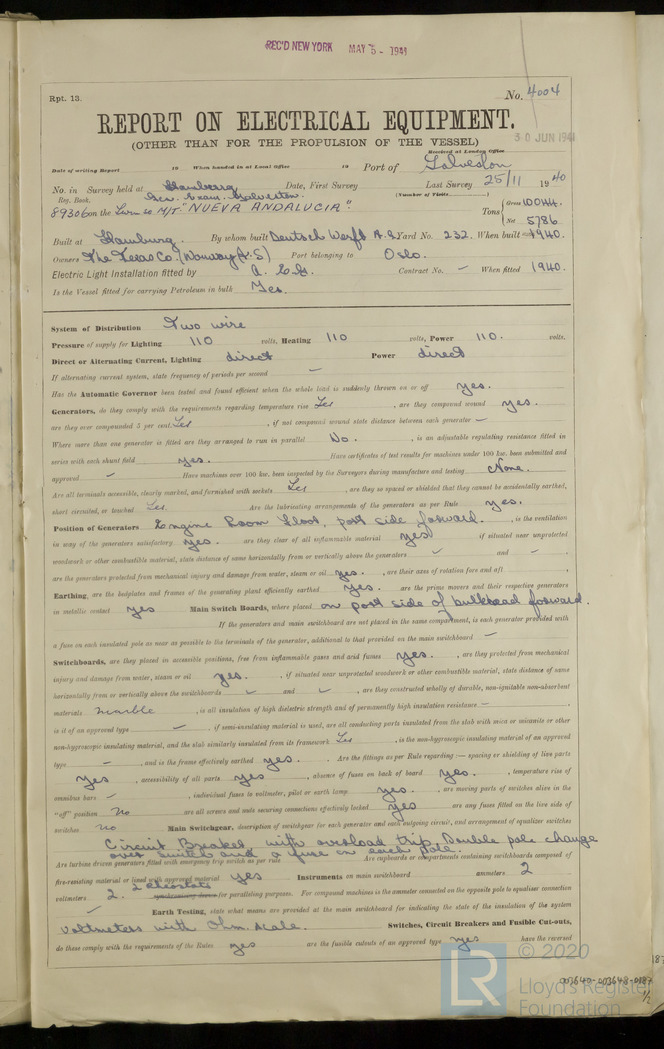 REC'D NEW YORK MAY 5 - 1941
Rpt. 13.
No. 4004
REPORT ON ELECTRICAL EQUIPMENT.
(OTHER THAN FOR THE PROPULSION OF THE VESSEL)
30 JUN 1941
Received at London Office
Date of writing Report 19 When handed in at Local Office 19 Port of Galveston
No. in Survey held at Hamburg Date, First Survey Last Survey 25/11 1940
Reg. Book. Galveston (Number of Visits )
89306 on the M/T "NUEVA ANDALUCIA". Tons Gross 10044. Net 5786
Built at Hamburg. By whom built Deutsch Werft A.G. Yard No. 232. When built 1940.
Owners The Texas Co. (Norway A.S) Port belonging to Oslo.
Electric Light Installation fitted by A. E. G. Contract No. — When fitted 1940.
Is the Vessel fitted for carrying Petroleum in bulk Yes.
System of Distribution Two wire
Pressure of supply for Lighting 110 volts, Heating 110 volts, Power 110. volts.
Direct or Alternating Current, Lighting direct Power direct
If alternating current system, state frequency of periods per second —
Has the Automatic Governor been tested and found efficient when the whole load is suddenly thrown on or off yes.
Generators, do they comply with the requirements regarding temperature rise Yes , are they compound wound yes.
are they over compounded 5 per cent. Yes , if not compound wound state distance between each generator —
Where more than one generator is fitted are they arranged to run in parallel No. , is an adjustable regulating resistance fitted in
series with each shunt field yes. Have certificates of test results for machines under 100 kw. been submitted and
approved — Have machines over 100 kw. been inspected by the Surveyors during manufacture and testing None.
Are all terminals accessible, clearly marked, and furnished with sockets Yes , are they so spaced or shielded that they cannot be accidentally earthed,
short circuited, or touched Yes Are the lubricating arrangements of the generators as per Rule yes.
Position of Generators Engine Room floor, port side forward. , is the ventilation
in way of the generators satisfactory yes. are they clear of all inflammable material yes if situated near unprotected
woodwork or other combustible material, state distance of same horizontally from or vertically above the generators – and – ,
are the generators protected from mechanical injury and damage from water, steam or oil yes. , are their axes of rotation fore and aft
Earthing, are the bedplates and frames of the generating plant efficiently earthed yes. are the prime movers and their respective generators
in metallic contact yes Main Switch Boards, where placed on port side of bulkhead forward.
If the generators and main switchboard are not placed in the same compartment, is each generator provided with
a fuse on each insulated pole as near as possible to the terminals of the generator, additional to that provided on the main switchboard —
Switchboards, are they placed in accessible positions, free from inflammable gases and acid fumes yes. , are they protected from mechanical
injury and damage from water, steam or oil yes. , if situated near unprotected woodwork or other combustible material, state distance of same
horizontally from or vertically above the switchboards – and – , are they constructed wholly of durable, non-ignitable non-absorbent
materials marble , is all insulation of high dielectric strength and of permanently high insulation resistance –
is it of an approved type – , if semi-insulating material is used, are all conducting parts insulated from the slab with mica or micanite or other
non-hygroscopic insulating material, and the slab similarly insulated from its framework Yes , is the non-hygroscopic insulating material of an approved
type – , and is the frame effectively earthed yes. Are the fittings as per Rule regarding :— spacing or shielding of live parts
yes , accessibility of all parts yes , absence of fuses on back of board yes. , temperature rise of
omnibus bars – , individual fuses to voltmeter, pilot or earth lamp yes. , are moving parts of switches alive in the
"off" position No are all screws and nuts securing connections effectively locked yes are any fuses fitted on the live side of
switches No Main Switchgear, description of switchgear for each generator and each outgoing circuit, and arrangement of equaliser switches
Circuit Breaker with overload trip, Double pole change
over switch and a fuse on each pole
Are turbine driven generators fitted with emergency trip switch as per rule Are cupboards or compartments containing switchboards composed of
fire-resisting material or lined with approved material yes Instruments on main switchboard ammeters 2
voltmeters 2. 2 rheostats for paralleling purposes. For compound machines is the ammeter connected on the opposite pole to equaliser connection
– Earth Testing, state what means are provided at the main switchboard for indicating the state of the insulation of the system
voltmeters with Ohm scale. Switches, Circuit Breakers and Fusible Cut-outs,
do these comply with the requirements of the Rules yes are the fusible cutouts of an approved type yes have the reversed
© 2020
LR Lloyd's Register
Foundation
003640-003648-0187
1/2